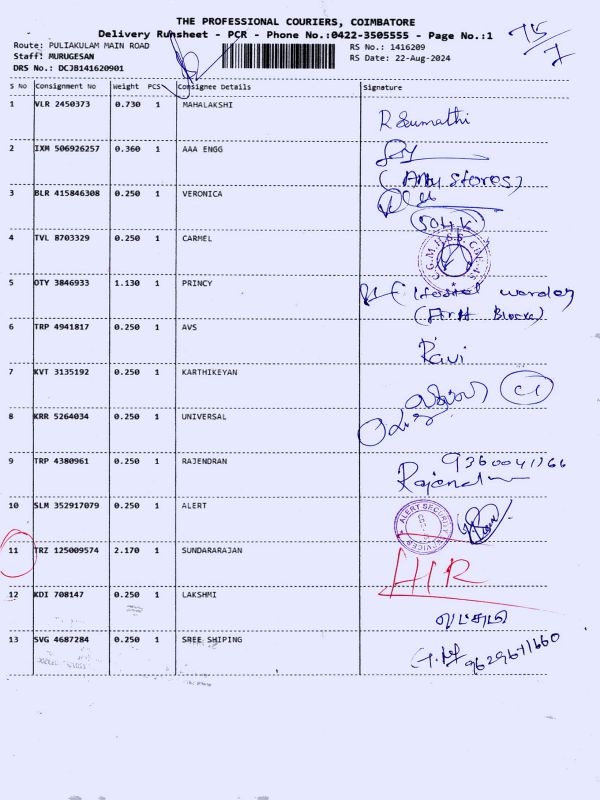 THE PROFESSIONAL COURIERS, COIMBATORE
Delivery Runsheet - PCR - Phone No.:0422-3505555 - Page No.:1
Route: PULIAKULAM MAIN ROAD
Staff: MURUGESAN
DRS No.: DCJB141620901
RS No.: 1416209
RS Date: 22-Aug-2024
S No Consignment No Weight PCS Consignee Details Signature
1 VLR 2450373 0.730 1 MAHALAKSHI
R Sumathi
2 IXM 506926257 0.360 1 AAA ENGG
3 BLR 415846308 0.250 1 VERONICA
4 TVL 8703329 0.250 1 CARMEL
5 OTY 3846933 1.130 1 PRINCY
Hostel warden
6 TRP 4941817 0.250 1 AVS
Ravi
7 KVT 3135192 0.250 1 KARTHIKEYAN
8 KRR 5264034 0.250 1 UNIVERSAL
9 TRP 4380961 0.250 1 RAJENDRAN
10 SLM 352917079 0.250 1 ALERT
ALERT SECURITY
11 TRZ 125009574 2.170 1 SUNDARARAJAN
12 KDI 708147 0.250 1 LAKSHMI
லட்சுமி
13 SVG 4687284 0.250 1 SREE SHIPING